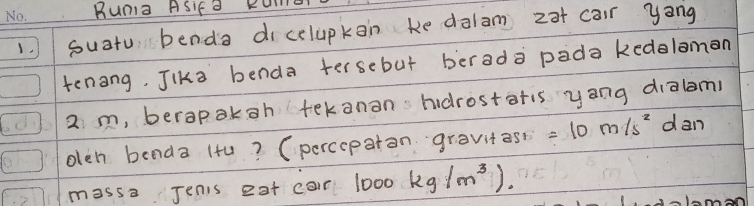 No. Runia Asifa
1. Suatu benda dicelupkan ke dalam zat cair yang
tenang. Jika benda tersebut berada pada kedalaman
2 m, berapakah tekanan hidrostatis yang dialami
oleh benda itu? (percepatan gravitasi = 10 m/s² dan
massa jenis zat cair 1000 kg/m³).